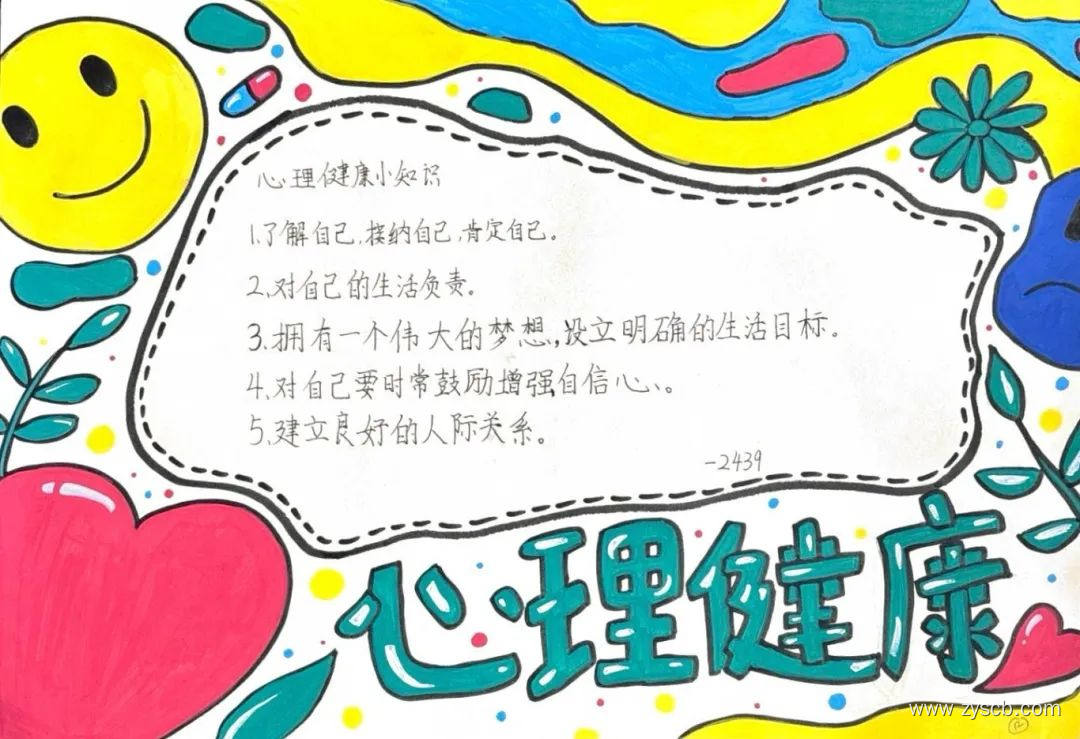 心理健康小知识
1.了解自己,接纳自己,肯定自己。
2.对自己的生活负责。
3.拥有一个伟大的梦想,设立明确的生活目标。
4.对自己要时常鼓励增强自信心、。
5.建立良好的人际关系。
-2439
心理健康
www.zyscb.com